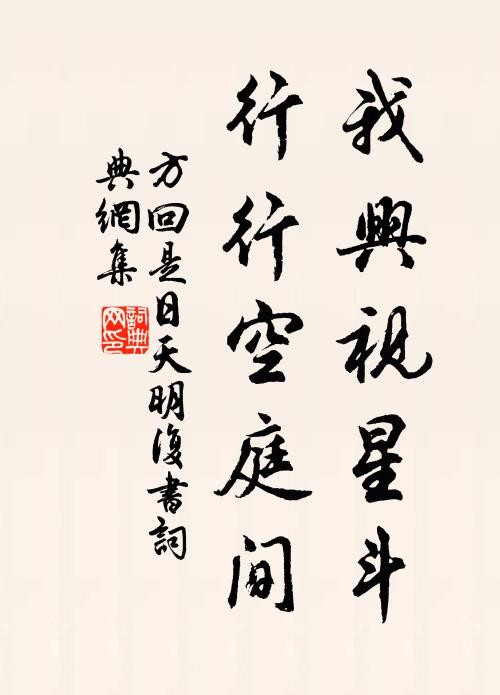 我興視星斗
行行空庭間
方回是日天明復書詞
典網集
詞典
网印